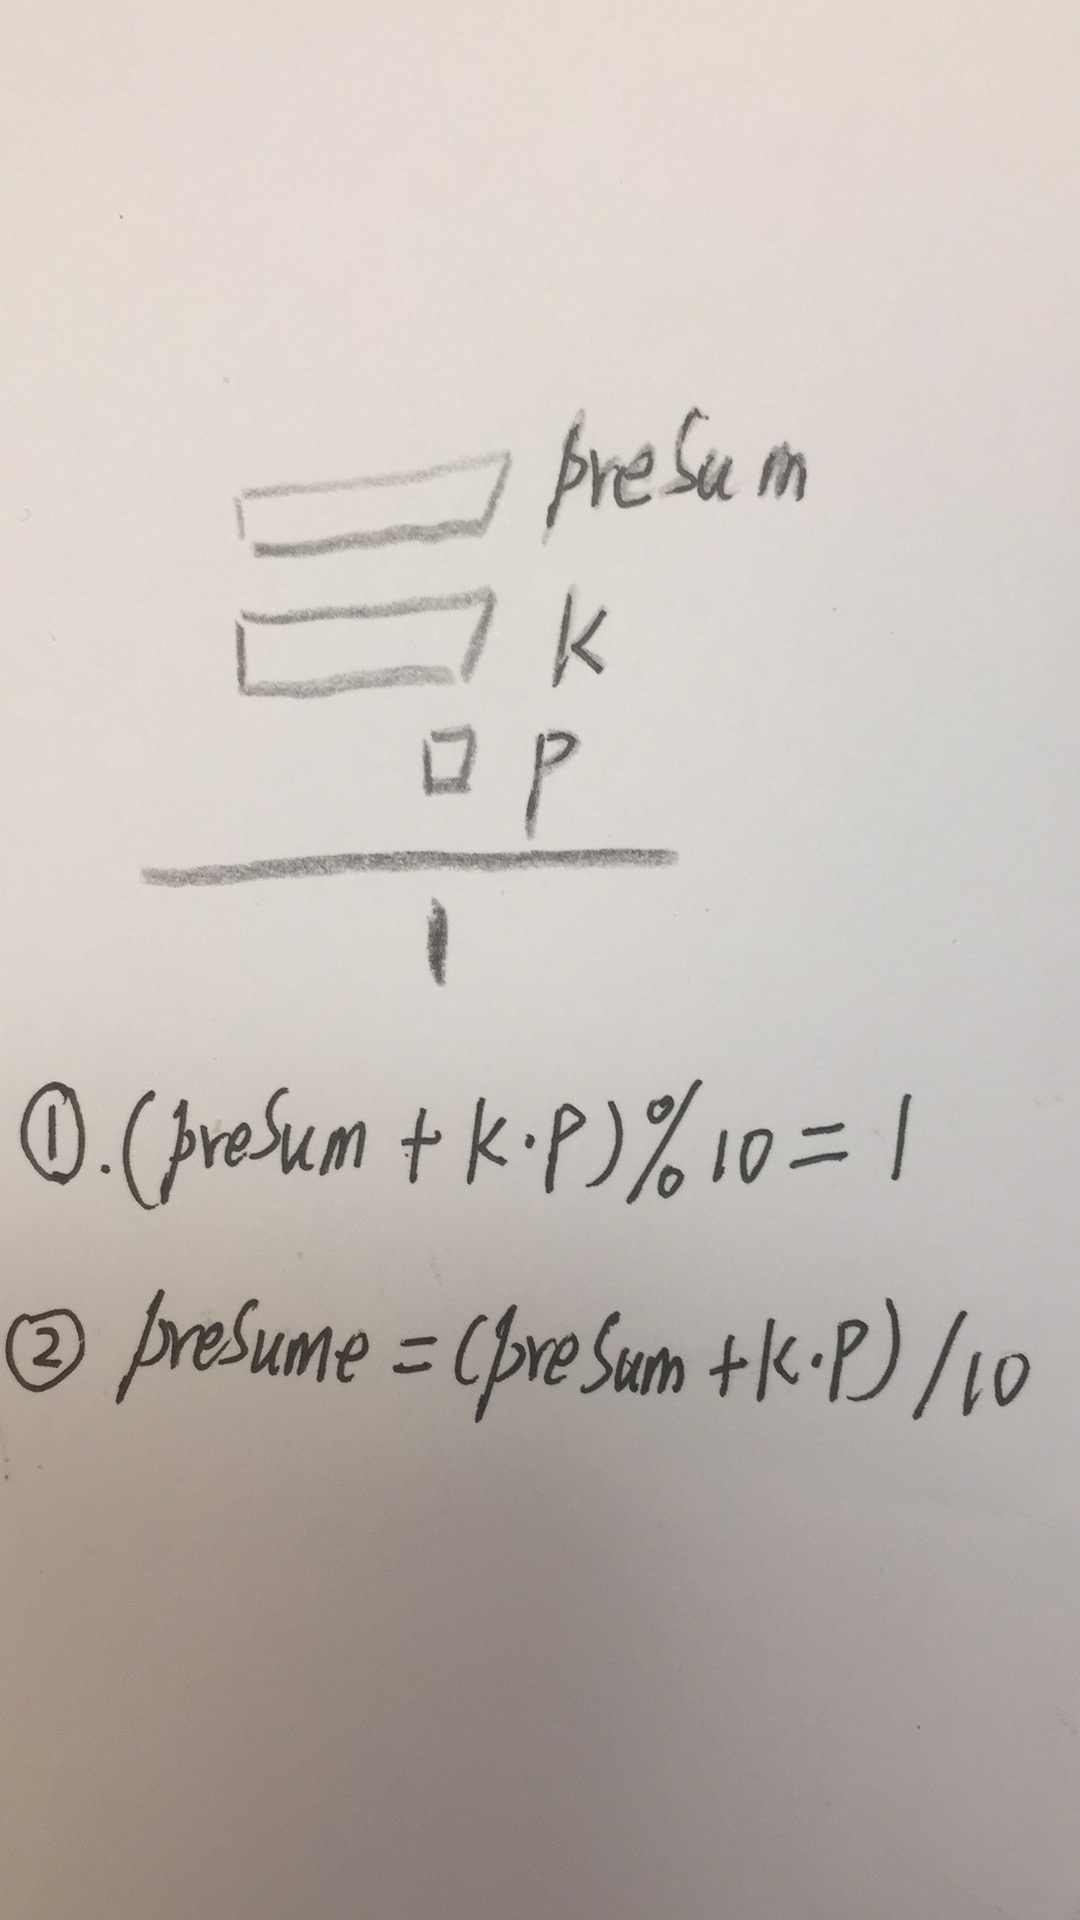 preSum
K
P
1
①.(preSum + K·P)%10=1
② preSume=(preSum+K·P)/10